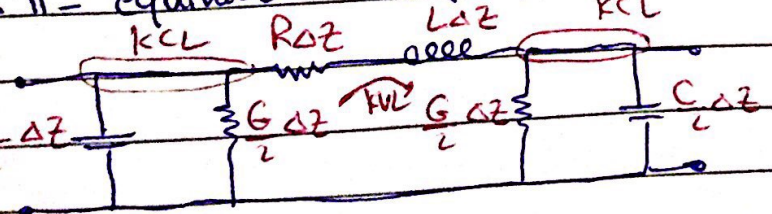 π- equiva
KCL RΔZ LΔZ KCL
ΔZ G/2 ΔZ KVL G/2 ΔZ C/2 ΔZ